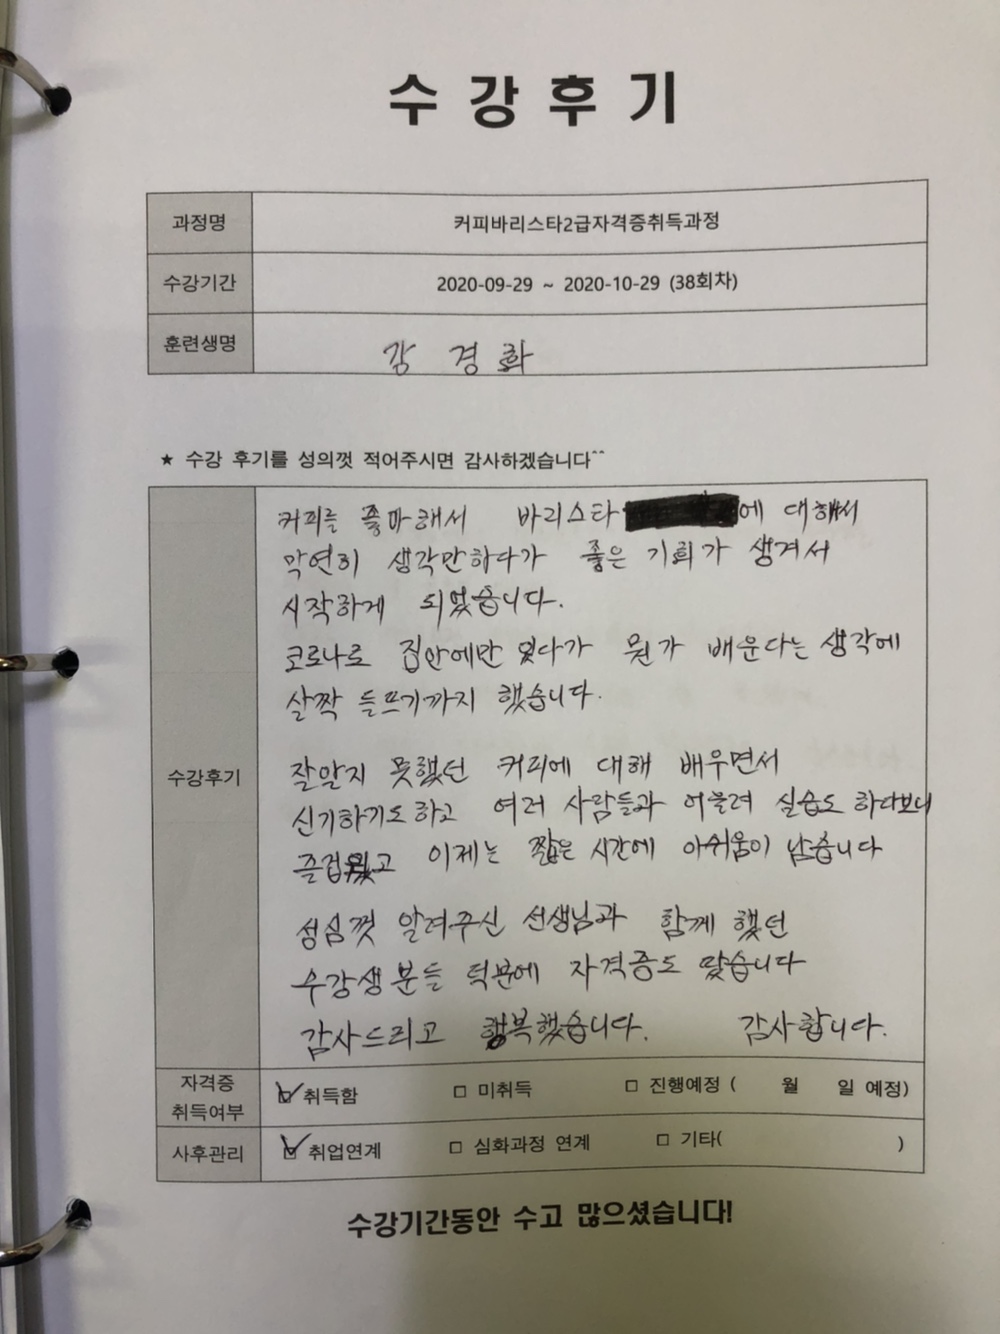 수 강 후 기
과정명 커피바리스타2급자격증취득과정
수강기간 2020-09-29 ~ 2020-10-29 (38회차)
훈련생명 강 경 화
★ 수강 후기를 성의껏 적어주시면 감사하겠습니다^^
커피를 좋아해서 바리스타 에 대해서
막연히 생각만하다가 좋은 기회가 생겨서
시작하게 되었습니다.
코로나로 집안에만 있다가 뭔가 배운다는 생각에
살짝 들뜨기까지 했습니다.
잘알지 못했던 커피에 대해 배우면서
수강후기
신기하기도하고 여러 사람들과 어울려 실습도 하다보니
즐겁웠고 이제는 짧은 시간에 아쉬움이 남습니다
성심껏 알려주신 선생님과 함께 했던
수강생분들 덕분에 자격증도 땄습니다
감사드리고 행복했습니다. 감사합니다.
자격증 취득여부 ☑ 취득함 □ 미취득 □ 진행예정 ( 월 일 예정)
사후관리 ☑ 취업연계 □ 심화과정 연계 □ 기타( )
수강기간동안 수고 많으셨습니다!